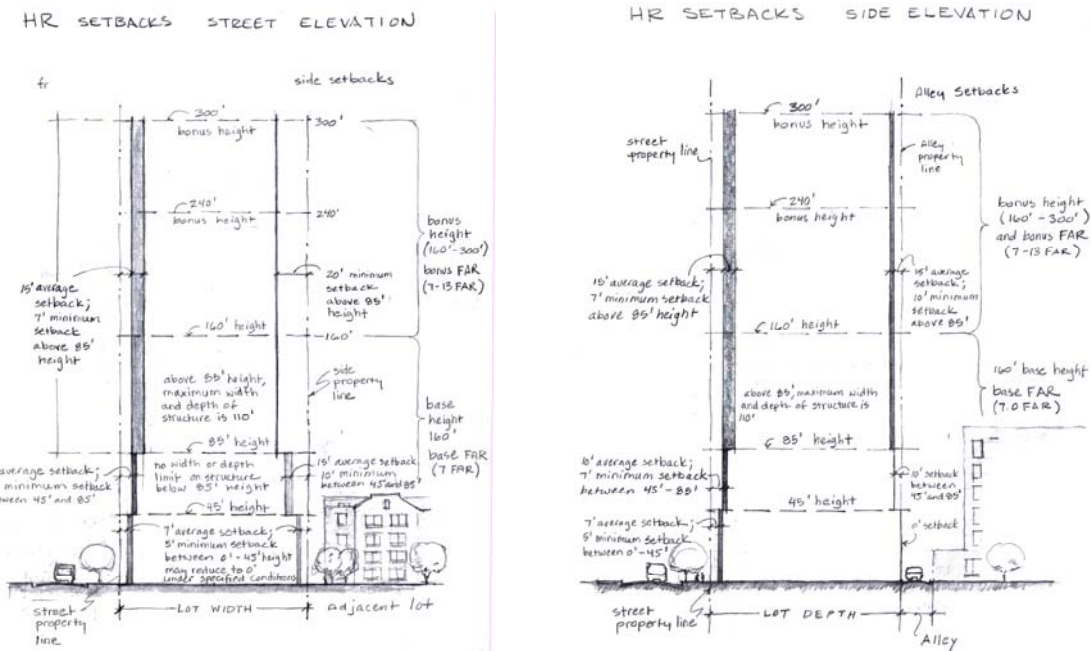 HR SETBACKS STREET ELEVATION
fr
side setbacks
300'
bonus height
300'
240'
bonus height
240'
bonus
height
(160'-300')
bonus FAR
(7-13 FAR)
15' average
setback;
7' minimum
setback
above 85'
height
20' minimum
setback
above 85'
height
160' height
160'
above 85' height,
maximum width
and depth of
structure is 110'
side
property
line
base
height
160'
base FAR
(7 FAR)
85' height
average setback;
minimum setback
between 45' and 85'
no width or depth
limit on structure
below 85' height
15' average setback
10' minimum
between 45' and 85'
45' height
7' average setback;
5' minimum setback
between 0'-45' height
may reduce to 0'
under specified conditions
street
property
line
LOT WIDTH
Adjacent lot
HR SETBACKS SIDE ELEVATION
Alley Setbacks
300'
bonus height
street
property line
Alley
property
line
240'
bonus height
bonus height
(160'-300')
and bonus FAR
(7-13 FAR)
15' average setback;
7' minimum setback
above 85' height
15' average
setback;
10' minimum
setback
above 85'
160' height
160' base height
base FAR
(7.0 FAR)
above 85', maximum width
and depth of structure is
110'
85' height
10' average setback;
7' minimum setback
between 45'-85'
10' setback
between
45' and 85'
45' height
7' average setback;
5' minimum setback
between 0'-45'
0' setback
street
property line
LOT DEPTH
Alley